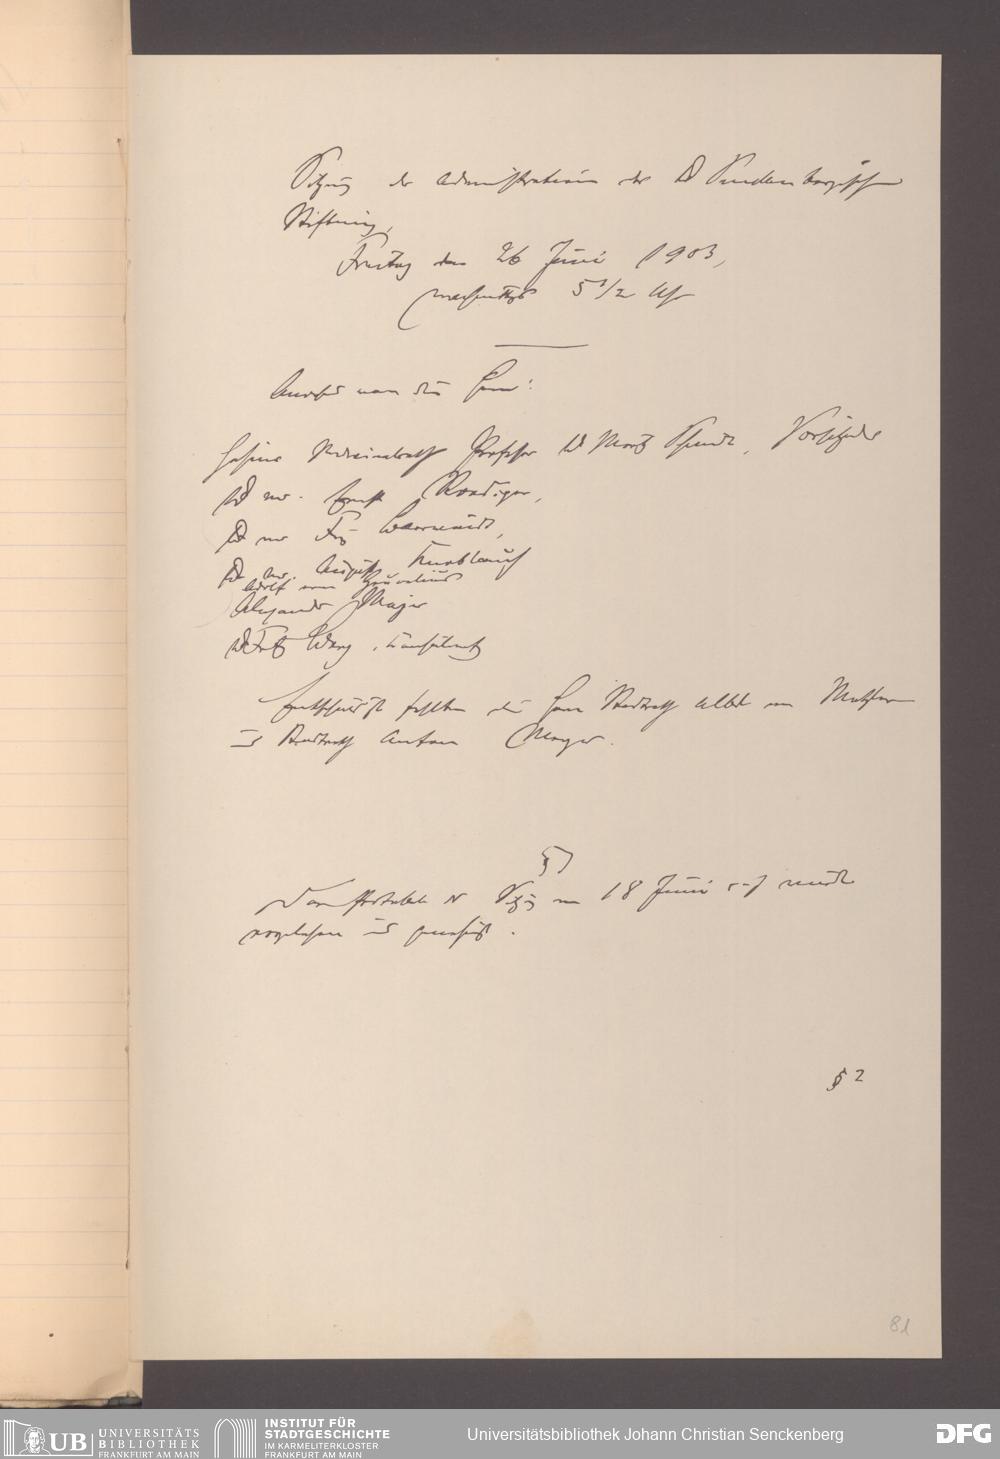 Sitzung der Administration der Dr Senckenbergischen
Stiftung,
Freitag den 26 Juni 1903,
nachmittgs 5 1/2 Uhr
Anwesend waren die Herrn:
Geheimer Medicinalrath Professor Dr Moritz Schmidt, Vorsitzender
Dr med. Ernst Roediger,
Dr med August Knoblauch
Adolf von Grunelius
Alexander Majer
Dr Fritz Berg, Consulent
Entschuldigt fehlten die Herrn Stadtrath Albert von Metzler
und Stadtrath Anton Meyer.
§ 1
Das Protokoll der Sitzung vom 18 Juni wurde
vorgelesen und genehmigt.
§ 2
81
UB UNIVERSITÄTS
BIBLIOTHEK
FRANKFURT AM MAIN
INSTITUT FÜR
STADTGESCHICHTE
IM KARMELITERKLOSTER
FRANKFURT AM MAIN
Universitätsbibliothek Johann Christian Senckenberg
DFG